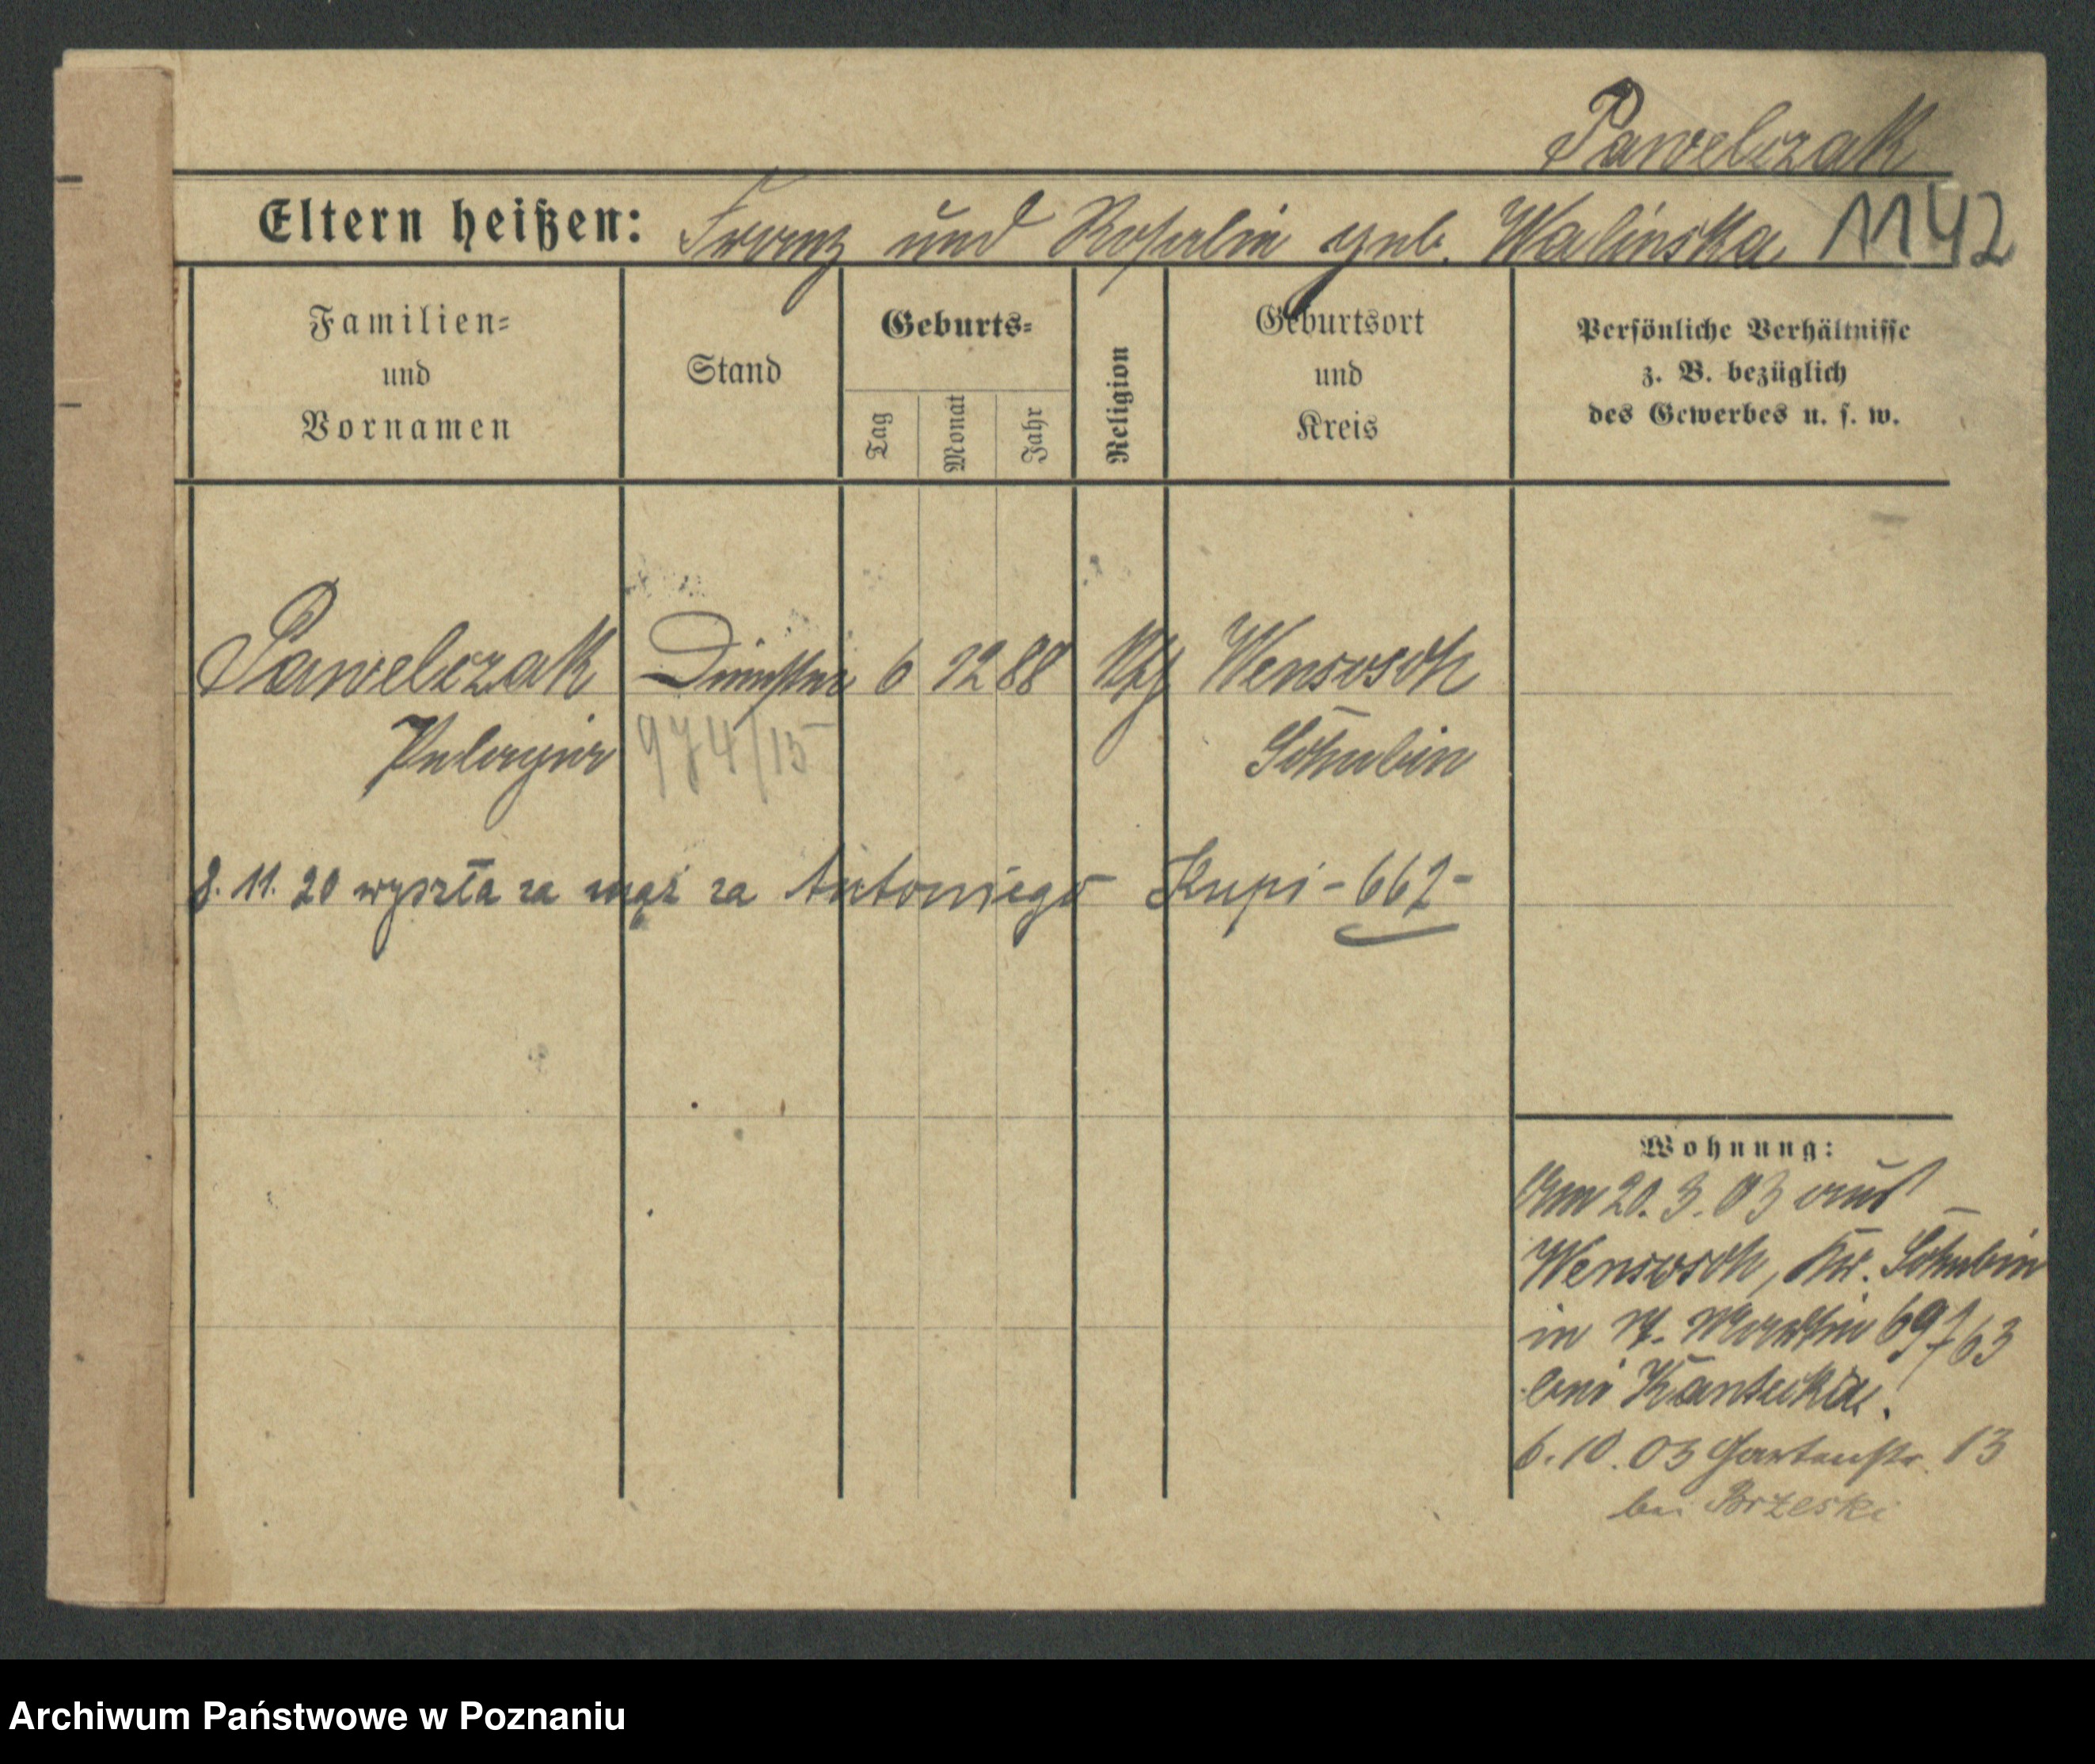 Pawelczak
Eltern heißen: Franz und Rosalie geb. Walinska 1142
Familien=
und
Vornamen
Stand
Geburts=
Tag
Monat
Jahr
Religion
Geburtsort
und
Kreis
Persönliche Verhältnisse
z. B. bezüglich
des Gewerbes u. s. w.
Pawelczak 6 12 88 Kth Wensosch
Pelagia 974/15 Schubin
8. 11. 20 wyszła za mąż za Antoniego Kupi - 662 -
Wohnung:
Am 20. 3. 03 aus
Wensosch, Kr. Schubin
in St. Martin 69/63
bei Kantecki.
6. 10. 03 Gartenstr. 13
bei Brzeski
Archiwum Państwowe w Poznaniu